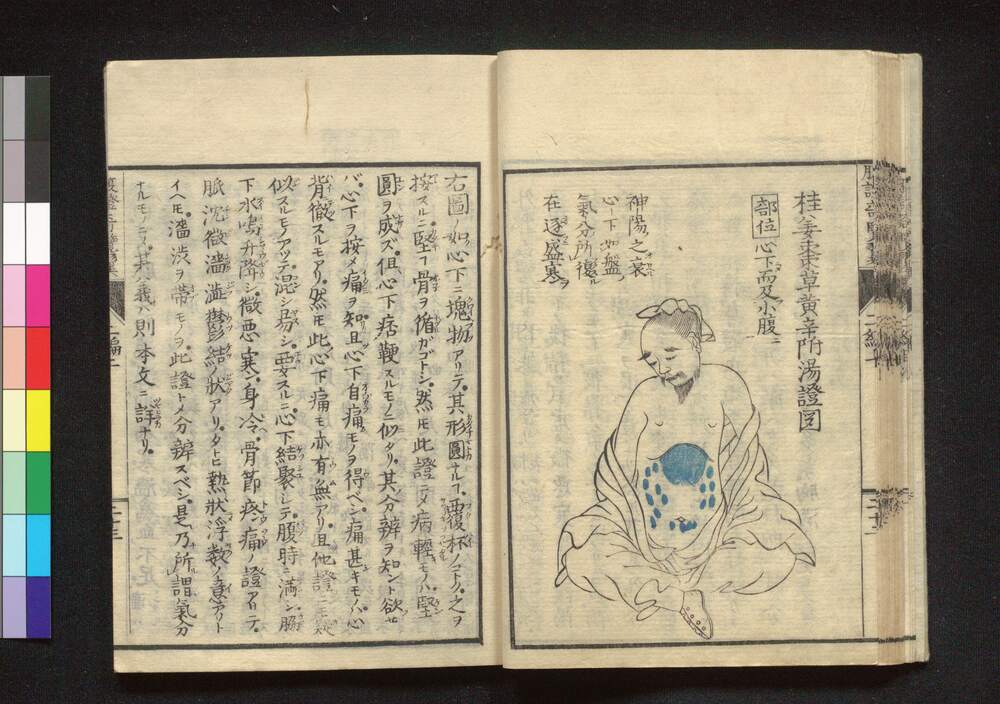 桂姜棗草黄辛附湯證図
部位 心下而及小腹ニ
神陽之衰
心下如盤
氣分所複
在逐盛寒ヲ
右圖ノ如心下ニ塊物アリテ、其形圓ナルヿ、覆杯ノコトク、之ヲ
按スルニ堅ヿ骨ヲ循ガゴトシ、然𪜈此證又病輕モノハ堅
圓ヲ成ズ、但心下痞鞕スルモノニ似タリ、其分辨ヲ知ント欲セ
バ、心下ヲ按メ痛ヲ知、且心下自痛モノヲ得ベシ、痛甚キモノハ心
背徹スルモアリ、然𪜈此心下痛モ亦有無アリ、且他證ニモ疑
似スルモノアツテ混シ易シ、要スルニ心下結聚シテ腹時ニ満シ、腸
下水鳴升降シ、微悪寒、身冷、骨節疼痛ノ證アリテ、
脈沈微濇澁鬱結ノ状アリ、タトヒ熱状浮数ノ意アリト
イヘ𪜈、濇渋ヲ帯モノヲ、此證トメ分辨スベシ、是乃所謂氣分
ナルモノニメ、其義ハ則本文ニ詳ナリ、
二編下
二十二